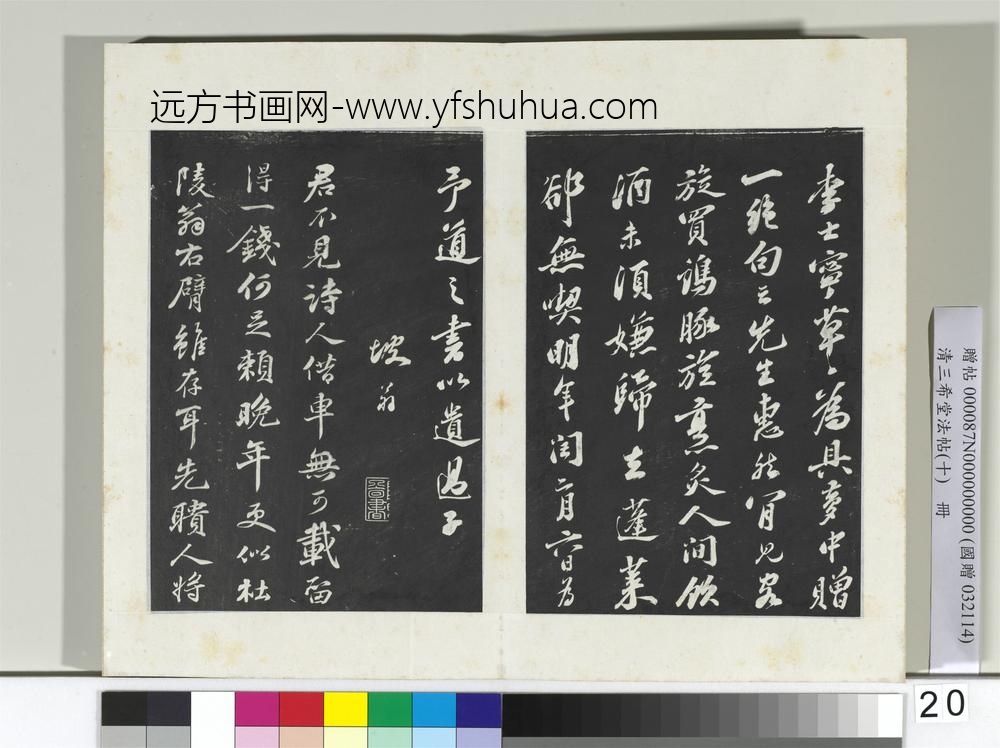 远方书画网-www.yfshuhua.com
李士寧草〻為具夢中贈
一絕句云先生惠然肯見客
旋買鷄豚旋烹炙人間飲
酒未須嫌歸去蓬萊
卻無喫明年閏二月六日為
予道之書以遺過子
坡翁
君不見詩人借車無可載留
得一錢何足賴晚年更似杜
陵翁右臂雖存耳先聵人將
贈帖 000087N000000000 (國贈 032114)
清三希堂法帖(十) 冊
20